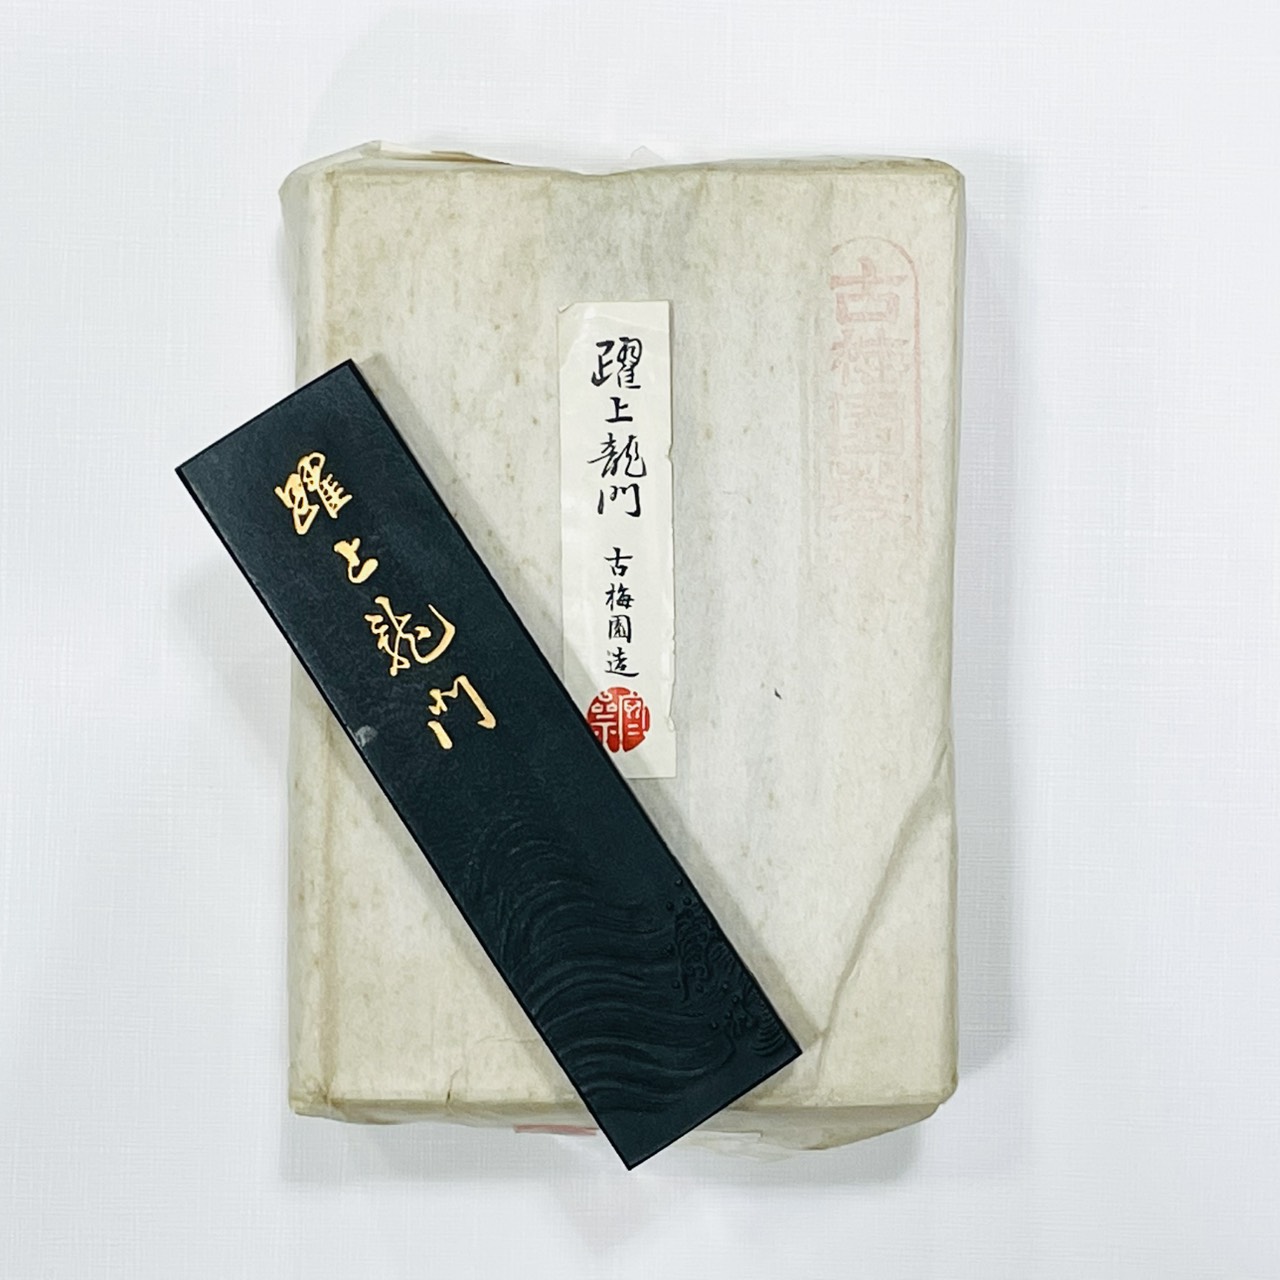 古梅園製墨
躍上龍門 古梅園造
躍上龍門